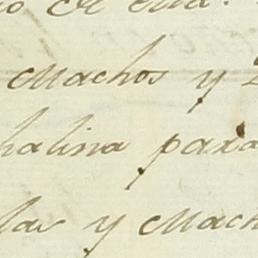 de esta.
Machos y
halina para
las y Mach